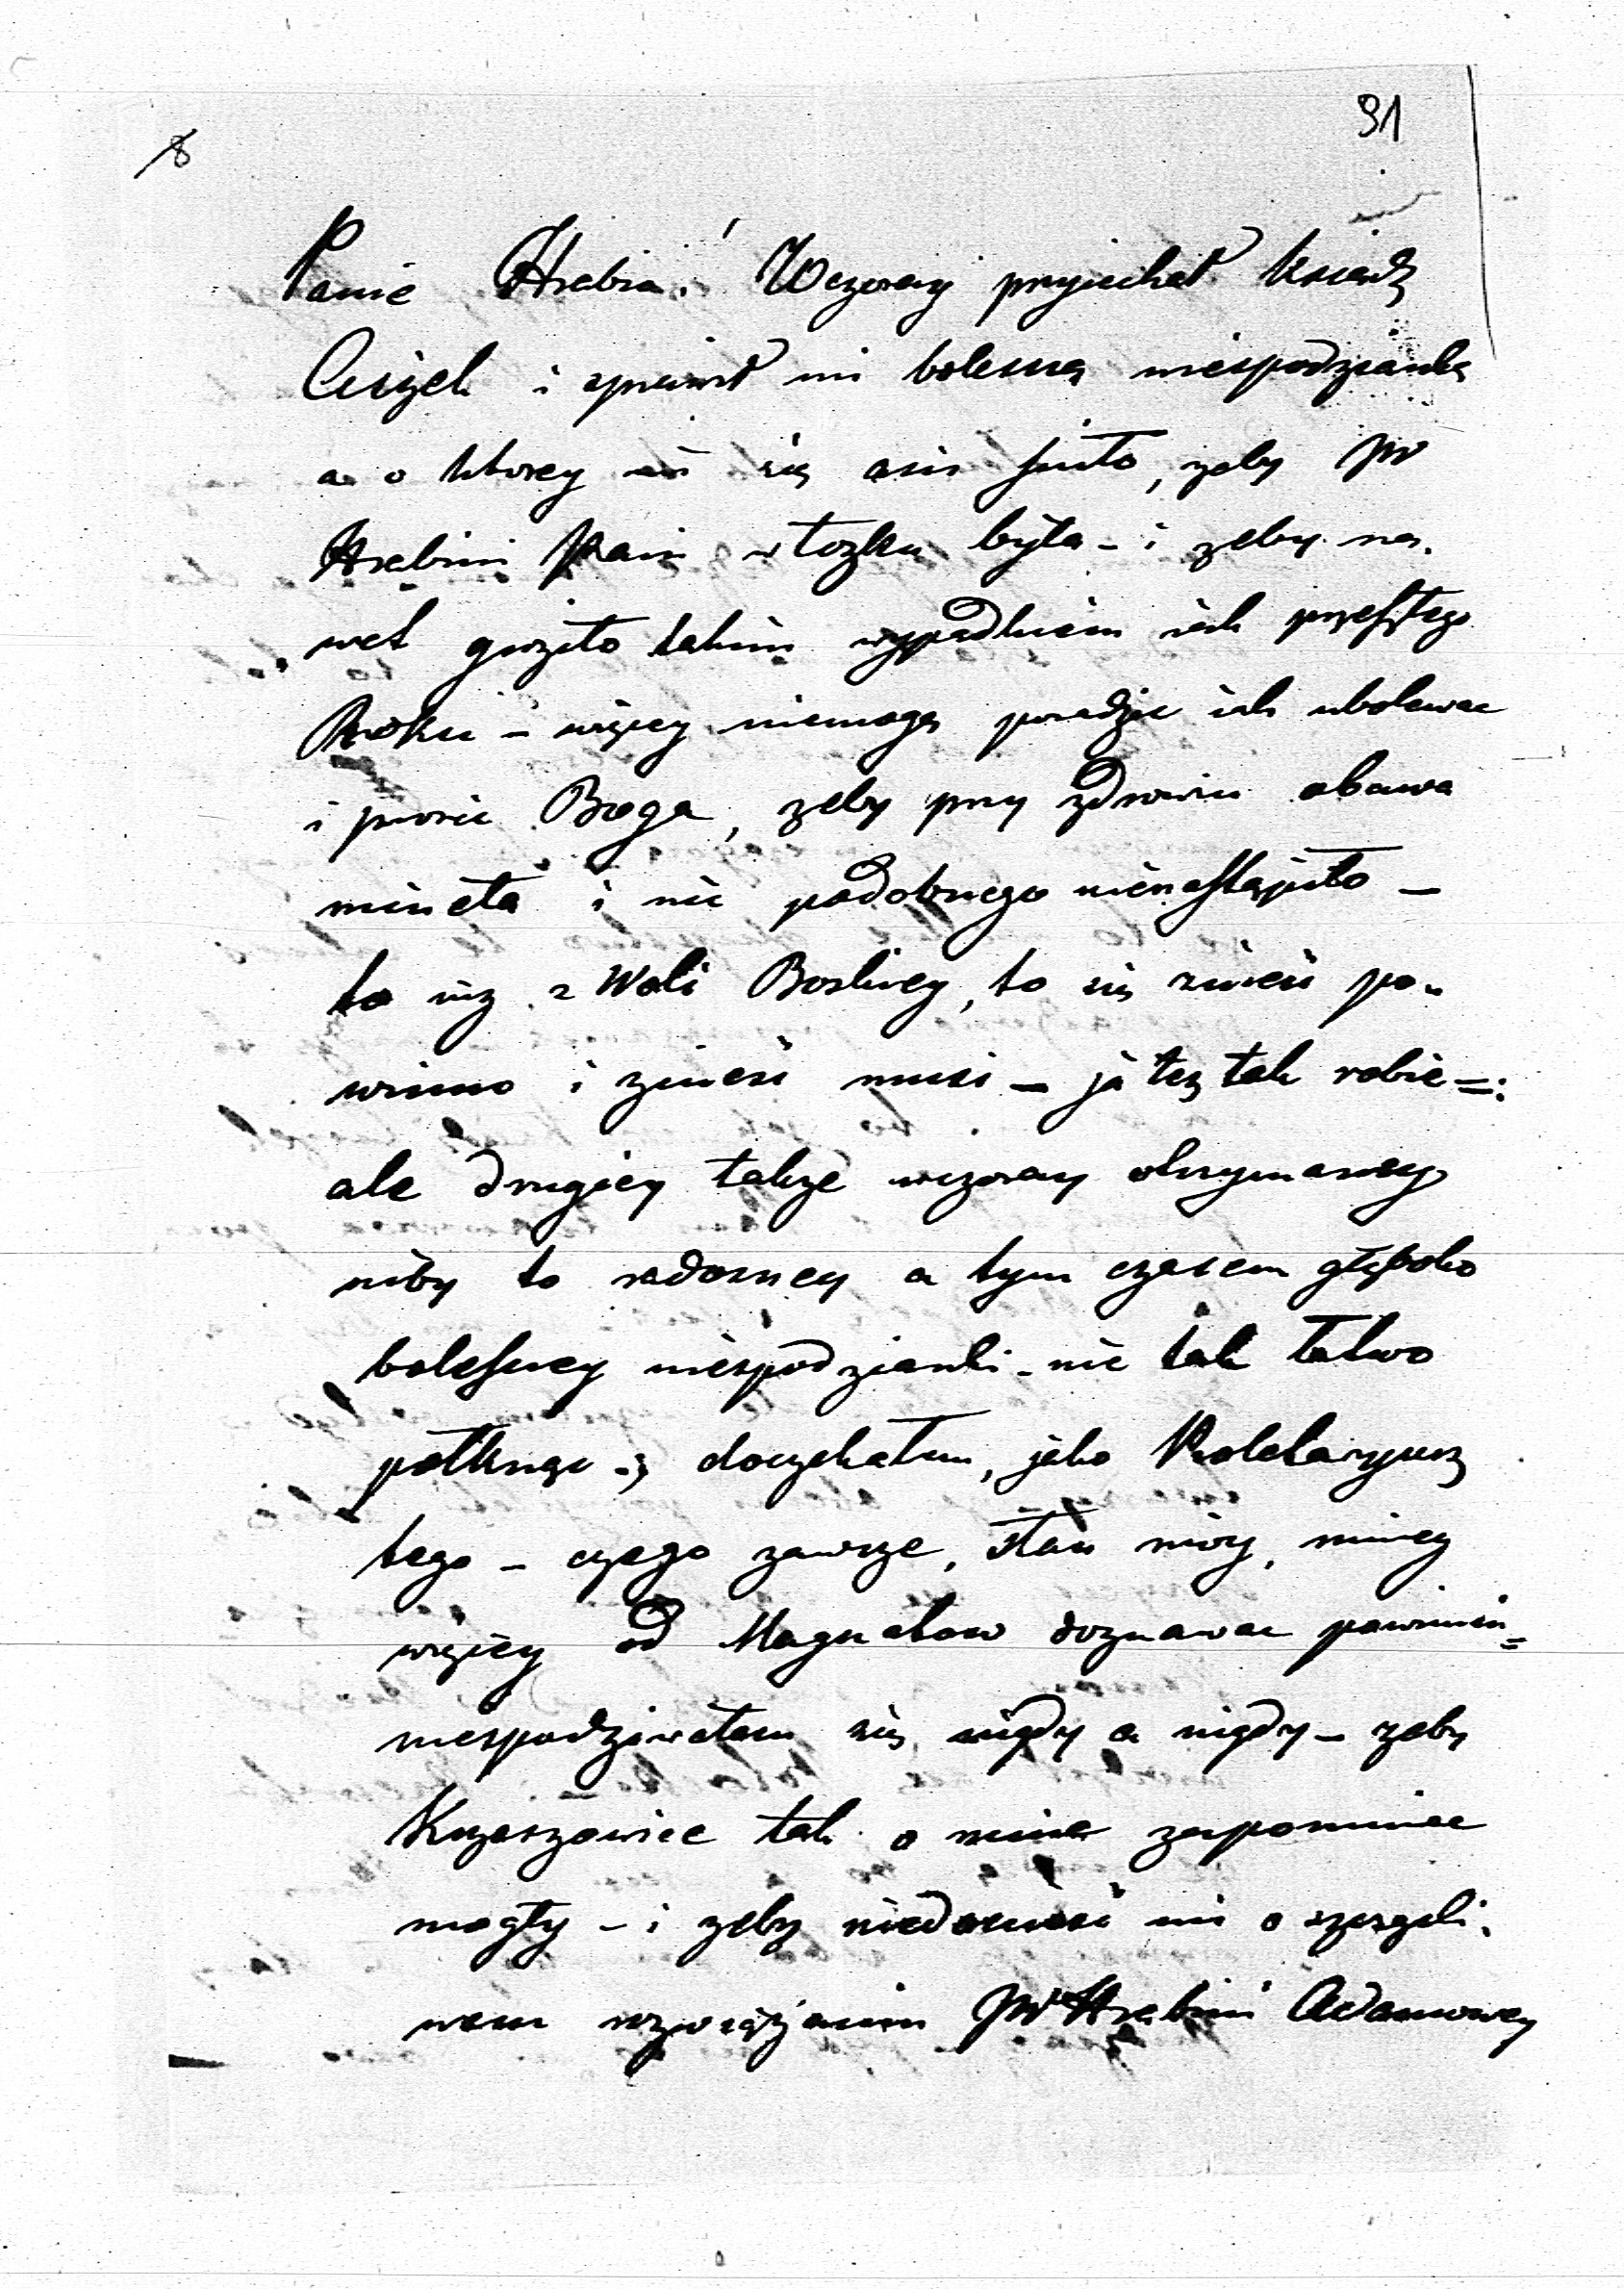 8
91
Panie Hrabia! Wczoray przyiechał ksiadz
Ciężek i sprawił mi bolesną niespodziankę
a o ktorey mi się anis sniło, zeby JW
Hrabini Pani w łozku była - i zeby na-
wet groziło takim wypadkiem iak przeszłego
Roku - więcey niemogę poradzic iak ubolewac
i prosic Boga, zeby przy zdrowiu obawa
mineła i nic podobnego nienastąpiło -
to iuz z Woli Boskiey, to się zniesc po-
winno i zniesc musi - ja tez tak robie -:
ale drugiey takze wczoray otrzymaney
niby to radosney a tym czasem głęboko
bolesney niespodzianki - nie tak łatwo
połknąc - doczekałem, jako Proletaryusz
tego - czego zawsze, stan móy, mniey
więcey od Magnatow doznawac powinien =
niespodziwałem się nigdy a nigdy - zeby
Krzeszowice tak o mnie zapominac
mogły - i zeby niedoniesć mi o szczęśli-
wem rozwiązaniu JW Hrabini Adamowey